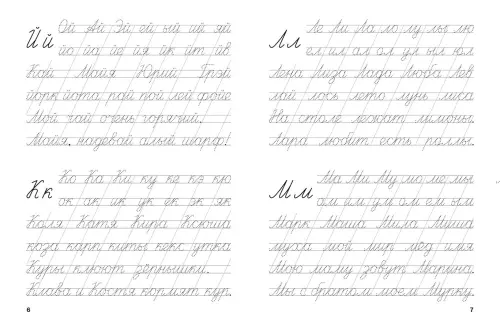 Й й
Ой Ай Эй ей ый ий яй
йо йа йе йя йк йт йв
Кай Майя Юрий Грэй
йорк йота рай пой лей фойе
Мой чай очень горячий.
Майя, надевай алый шарф!
К к
Ко Ка Ки ку ке кэ кю
ок ак ик ук ек эк як
Коля Катя Кира Ксюша
коза карп киты кекс утка
Куры клюют зёрнышки.
Клава и Костя кормят кур.
6
Л л
Ле Ли Ла ло лу лы лю
ел ил ал ол ул ыл юл
Лена Лиза Лада Люба Лев
лай лось лето лунь лиса
На столе лежат лимоны.
Лара любит есть роллы.
М м
Ма Ми Му мо ме мы
ам им ум ом ем ым
Марк Маша Мила Миша
муза мой мир мёд имя
Мою маму зовут Марина.
Мы с братом моем Мурку.
7